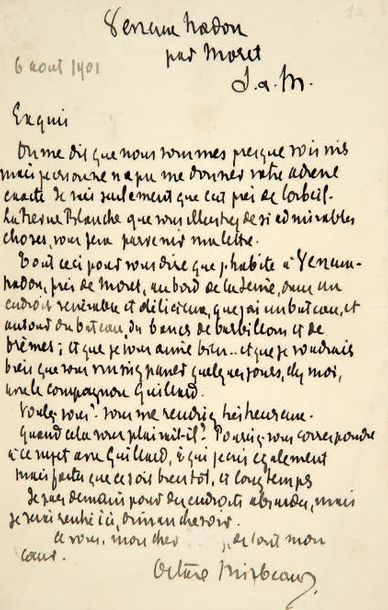 Veneux Nadon
par Moret
S. et M.
6 août 1901
Exquis
On me dit que nous sommes presque voisins
mais personne n'a pu me donner votre adresse
exacte. Je sais seulement que c'est près de Corbeil.
La Revue Blanche que vous illustrez de si admirables
choses, vous fera parvenir ma lettre.
Tout ceci pour vous dire que j'habite à Veneux-
Nadon, près de Moret, au bord de la Seine, dans un
endroit vénérable et délicieux, que j'ai un bateau, et
autour du bateau, des bancs de barbillons et de
brèmes ; et que je vous aime bien.. et que je voudrais
bien que vous veniez passer quelques jours, chez moi,
avec le compagnon Guillard.
Voulez-vous ? Vous me rendriez très heureux.
Quand cela vous plairait-il ? Pourriez-vous correspondre
à ce sujet avec Guillard, à qui j'écris également
mais faites que ce soit bientôt, et longtemps
Je pars demain pour des endroits absurdes, mais
je serai rentré ici, dimanche soir.
À vous, mon cher , de tout mon
cœur.
Octave Mirbeau